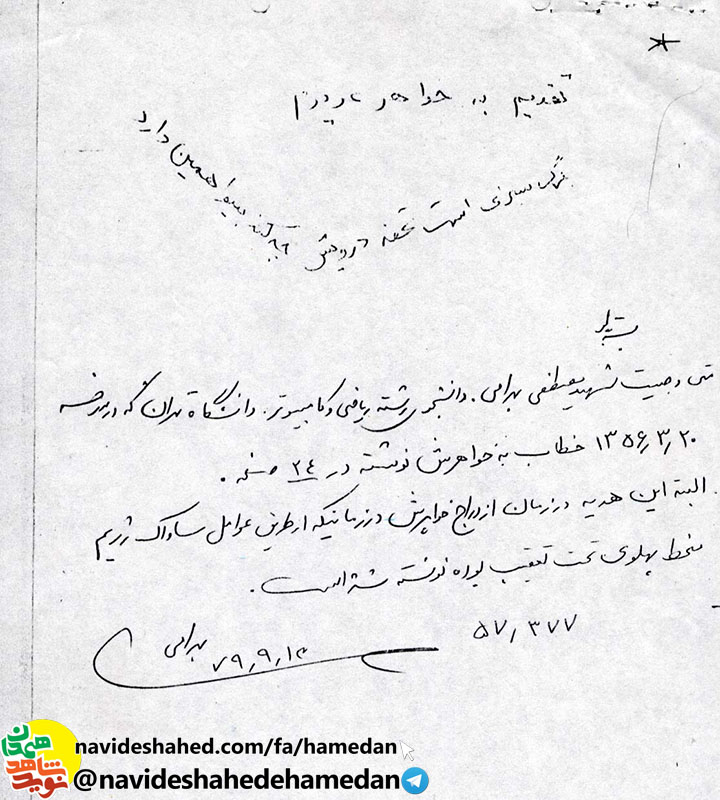 تقدیم به خواهر عزیزم
برگ سبزی است تحفه درویش چه کند بینوا همین دارد
بسمه تعالی
متن وصیت شهید مصطفی بهرامی. دانشجوی رشته ریاضی و کامپیوتر. دانشگاه تهران که در مورخه
۱۳۵۶٫۳٫۲۰ خطاب به خواهرش نوشته در ۲۴ صفحه.
البته این هدیه در زمان ازدواج خواهرش در زمانیکه از طرف عوامل ساواک رژیم
منحط پهلوی تحت تعقیب بوده نوشته شده است.
۵۷٫۳۷۷
بهرامی
۷۹٫۹٫۱۳
نوید شاهد همدان
navideshahed.com/fa/hamedan
@navideshahedehamedan